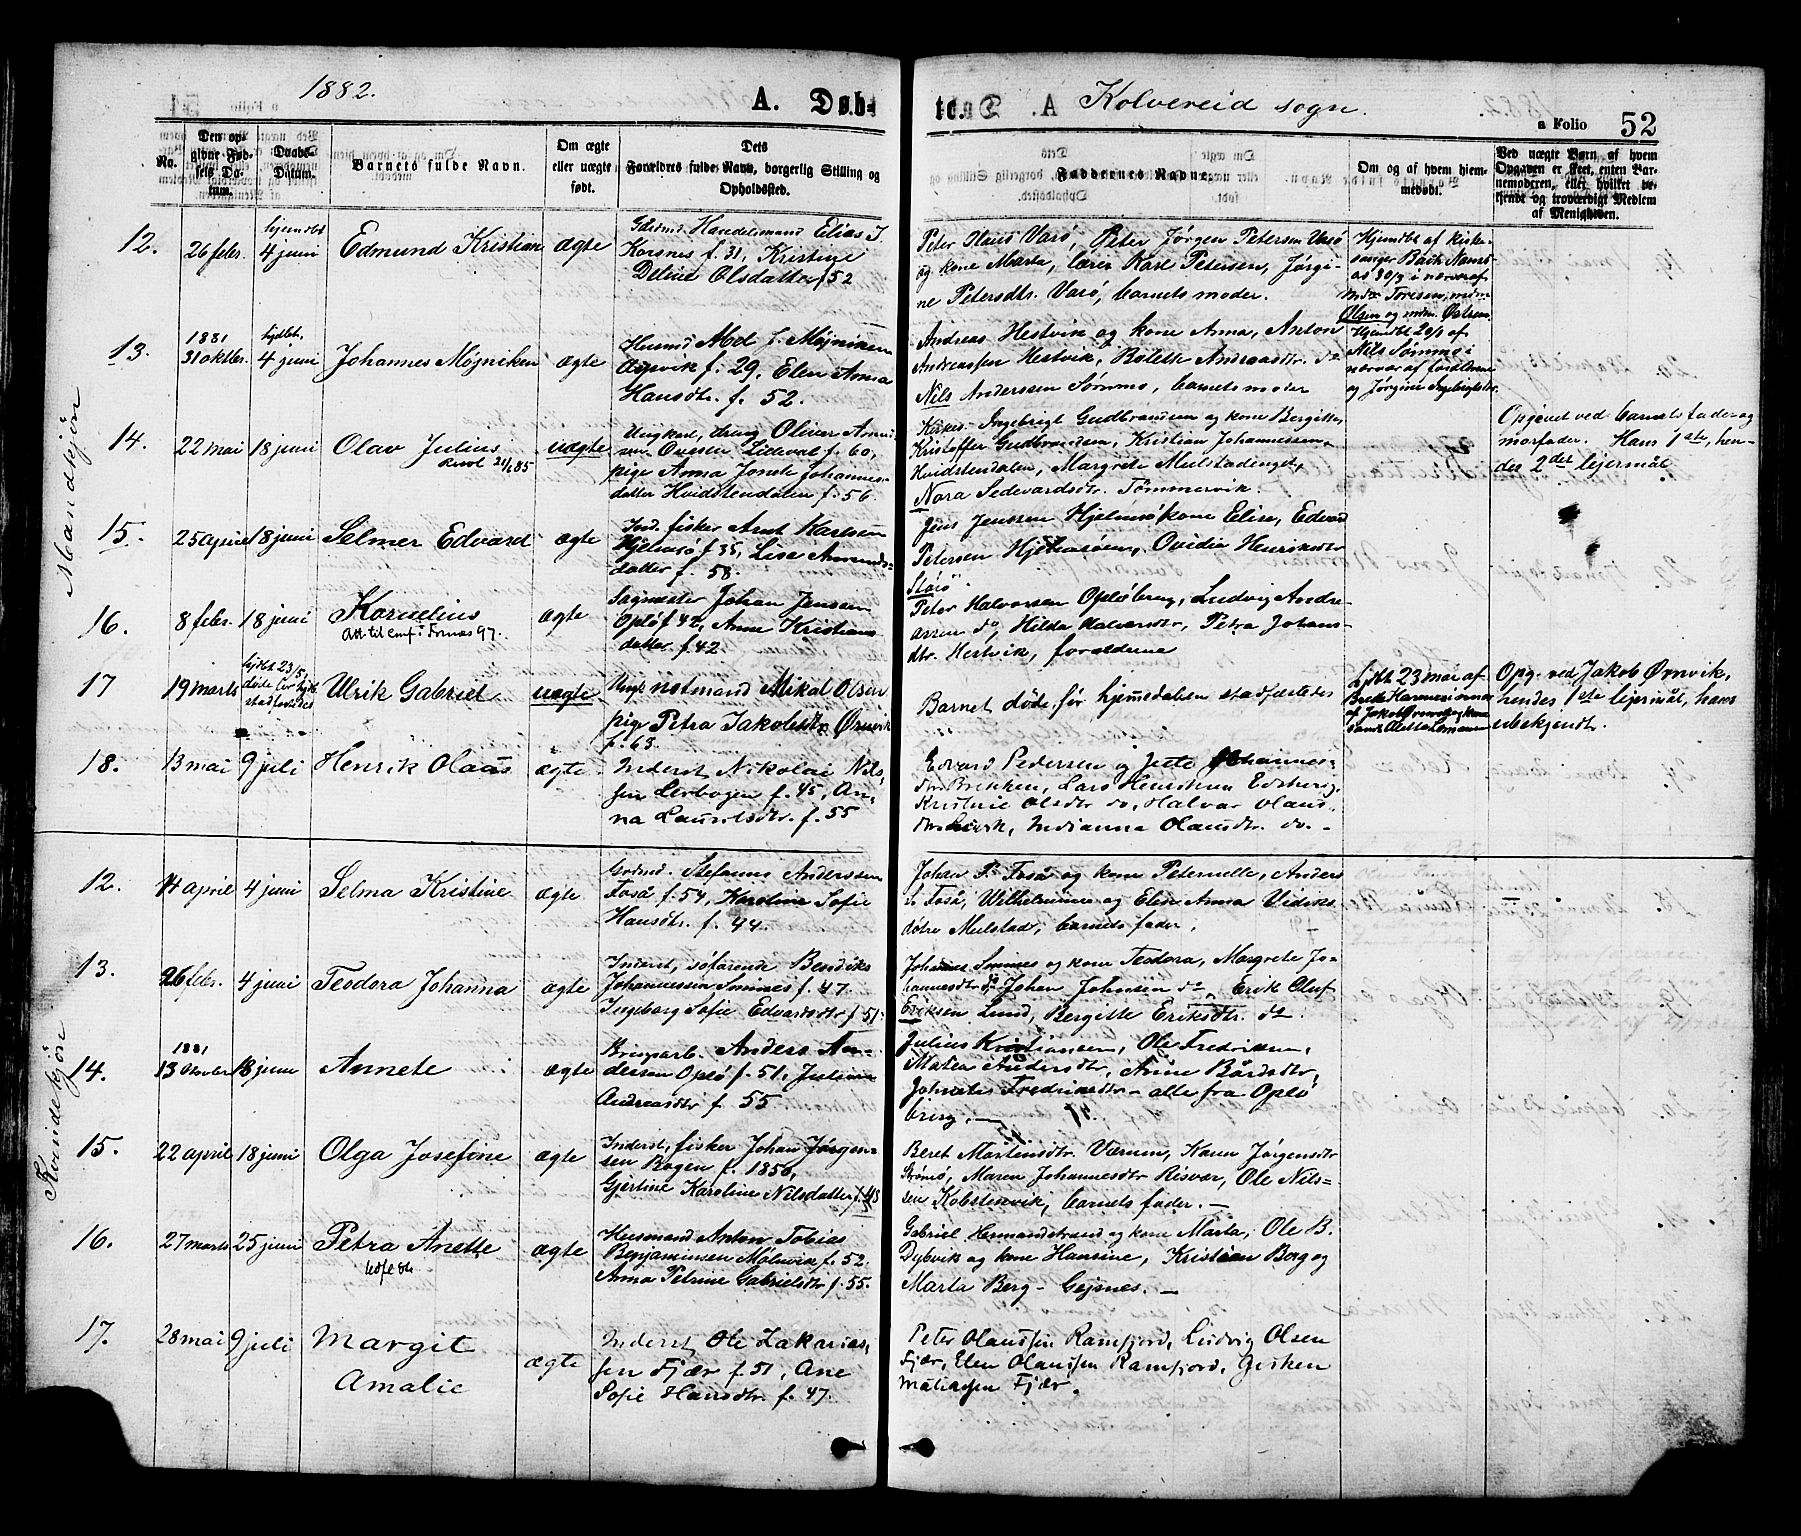 1882.
A. Døb-
te.
A
Kolvereid sogn.
a Folio 52
No.
Den op-
givne Fød-
sels Da-
tum.
Daabs-
Datum.
Barnets fulde Navn.
Om ægte
eller uægte
født.
Dets
Forældres fulde Navn, borgerlig Stilling og
Opholdssted.
Faddernes Navne.
Om og af hvem hjem-
medøbt.
Ved uægte Børn af hvem
Opgaven er skeet, enten Bar-
nemoderen, eller hvilket be-
kjendt og troværdigt Medlem
af Menigheden.
Mandkjøn
12.
26 febr.
hjemdbt
4 juni
Edmund Kristian
ægte
Handelsmand Elias J.
Korsnes f. 31, Kristine
Delene Olsdatter f 52
Peter Hans Varø, Peter Jørgen Petersen Varø
og kone Marta, lærer Karl Petersen, Jørgi-
ne Petersdtr. Varø, barnets moder.
Hjemdbt af kirke-
sanger Bach
30/3 i nærvær af
Olsen og mdm. Østsem.
13.
1881
31 oktbr.
4 juni
Johannes Mojniken
ægte
Husmd Abel f. Mojniken
f. 29, Elen Anna
Hansdtr. f. 52.
Andreas Hestvik og kone Anna, Anton
Andreassen Hestvik, Bolette Andreasdtr. do
Nils Anderssen Sømmo, barnets moder
Hjemdbt 20/1 af
Nils Sømmo i
nærvær af forældrene
og Jørgine Ingebrigtsdtr.
14.
22 mai
18 juni
Olav Julius
21/6 85
uægte
Ungkarl, dreng Oliver
Ovesen Lildeval f. 60,
pige Anna Jonete Johannes-
datter Hvidstendalen f. 56.
Ingebrigt Gudbrandsen og kone Bergitte,
Kristoffer Gudbrandsen, Kristian Johannessen
Hvidstendalen, Margrete Mulstadenget,
Nora Sedevardsdtr. Tømmervik.
Opgivet ved barnets fader og
morfader. Hans 1ste, hen-
des 2det lejermål.
15.
25 april
18 juni
Selmer Edvard
ægte
fisker Arnt Karlsen
Hjelmsø f. 35, Lise Amunds-
datter f. 58.
Jens Jenssen Hjelmsø kone Elise, Edvard
Petersen Hjelmsøen, Ovidia Henriksdtr
Storø
16.
8 febr.
18 juni
Kornelius
Att til conf. i Fosnæs 97.
ægte
Sagmester Johan Jenssen
Oplø f. 42, Anne Kristians-
datter f. 42
Peter Halvorsen Opløbrug, Ludvig Andre-
assen do, Hilda Halvorsdtr., Petra Johans-
dtr. Hestvik, forældrene
17
19 marts
hjdbt 23/5,
døde før hjd.
stadfæstedes
Ulrik Gabriel
uægte
notmand Mikal Olsen
pige Petra Jakobsdtr. Ørsvik
f. 63.
Barnet døde før hjemedåben stadfæstedes
Hjdbt 23 mai af
Opg. ved Jakob Ørsvik,
hendes 1ste lejermål, hans
ubekjendt.
18.
13 mai
9 juli
Henrik Olaus
ægte
Inderst Nikolai Nils-
sen Lerbogen f. 45, An-
na Lauritsdtr. f. 55
Edvard Pedersen og Jette Johannes-
dtr Brekken, Lars Henriksen Edshaug,
Kristine Olsdtr do, Halvar Olaus-
, Indianna Olausdtr. do. -
Kvindekjøn
12.
14 april
4 juni
Selma Kristine
ægte
Gårdmd. Stefanus Anderssen
Foså f. 54, Karoline Sofie
Hansdtr. f. 44.
Johan P. Foså og kone Peternelle, Anders
S. Foså, Wilhelmine og Elen Anna Vidiks-
døtre Mulstad, barnets fader.
13.
26 febr.
4 juni
Teodora Johanna
ægte
Inderst, søfarende Bendiks
Johannessen Smines f. 47.
Ingeborg Sofie Edvardsdtr f. 51.
Johannes Smines og kone Teodora, Margrete Jo-
hannesdtr do Johan Johnsen do, Erik Oluf
Eriksen Lund, Bergitte Eriksdtr. do.
14.
1881
13 oktober
18 juni
Annete
ægte
Brugsarb. Anders An-
dersen Oplø f. 51, Juliane
Andreasdtr f. 55
Julius Kristiansen, Ole Fredriksen,
Matea Andersdtr, Anne Bårdsdtr,
Johneta Fredriksdtr - alle fra Oplø
brug. -
15.
22 april
18 juni
Olga Josefine
ægte
Inderst, fisker Johan Jørgen-
sen Bogen f. 1850,
Gjertine Karoline Nilsdatter f. 43
Beret Martinsdtr. Værum, Karen Jørgensdtr
Strømø, Maren Johannesdtr Risvær, Ole Nils-
sen Kobstenvik, barnets fader. -
16.
27 marts
25 juni
Petra Anette
ægte
Husmand Anton Tobias
Benjaminsen Malmvik f. 52.
Anna Petrine Gabrielsdtr f. 55.
Gabriel Hermandstrand og kone Marta, Ole B.
Dybvik og kone Hansine, Kristian Berg og
Marta Berg - Gejsnes. -
17.
28 mai
9 juli
Margit
Amalie
ægte
Inderst Ole Zakarias-
sen Fjær f. 51, Ane
Sofie Hansdtr. f. 47.
Peter Olaussen Ramfjord, Ludvig Olsen
Fjær, Elen Olaussen Ramfjord, Gjerken
Matiassen Fjær.